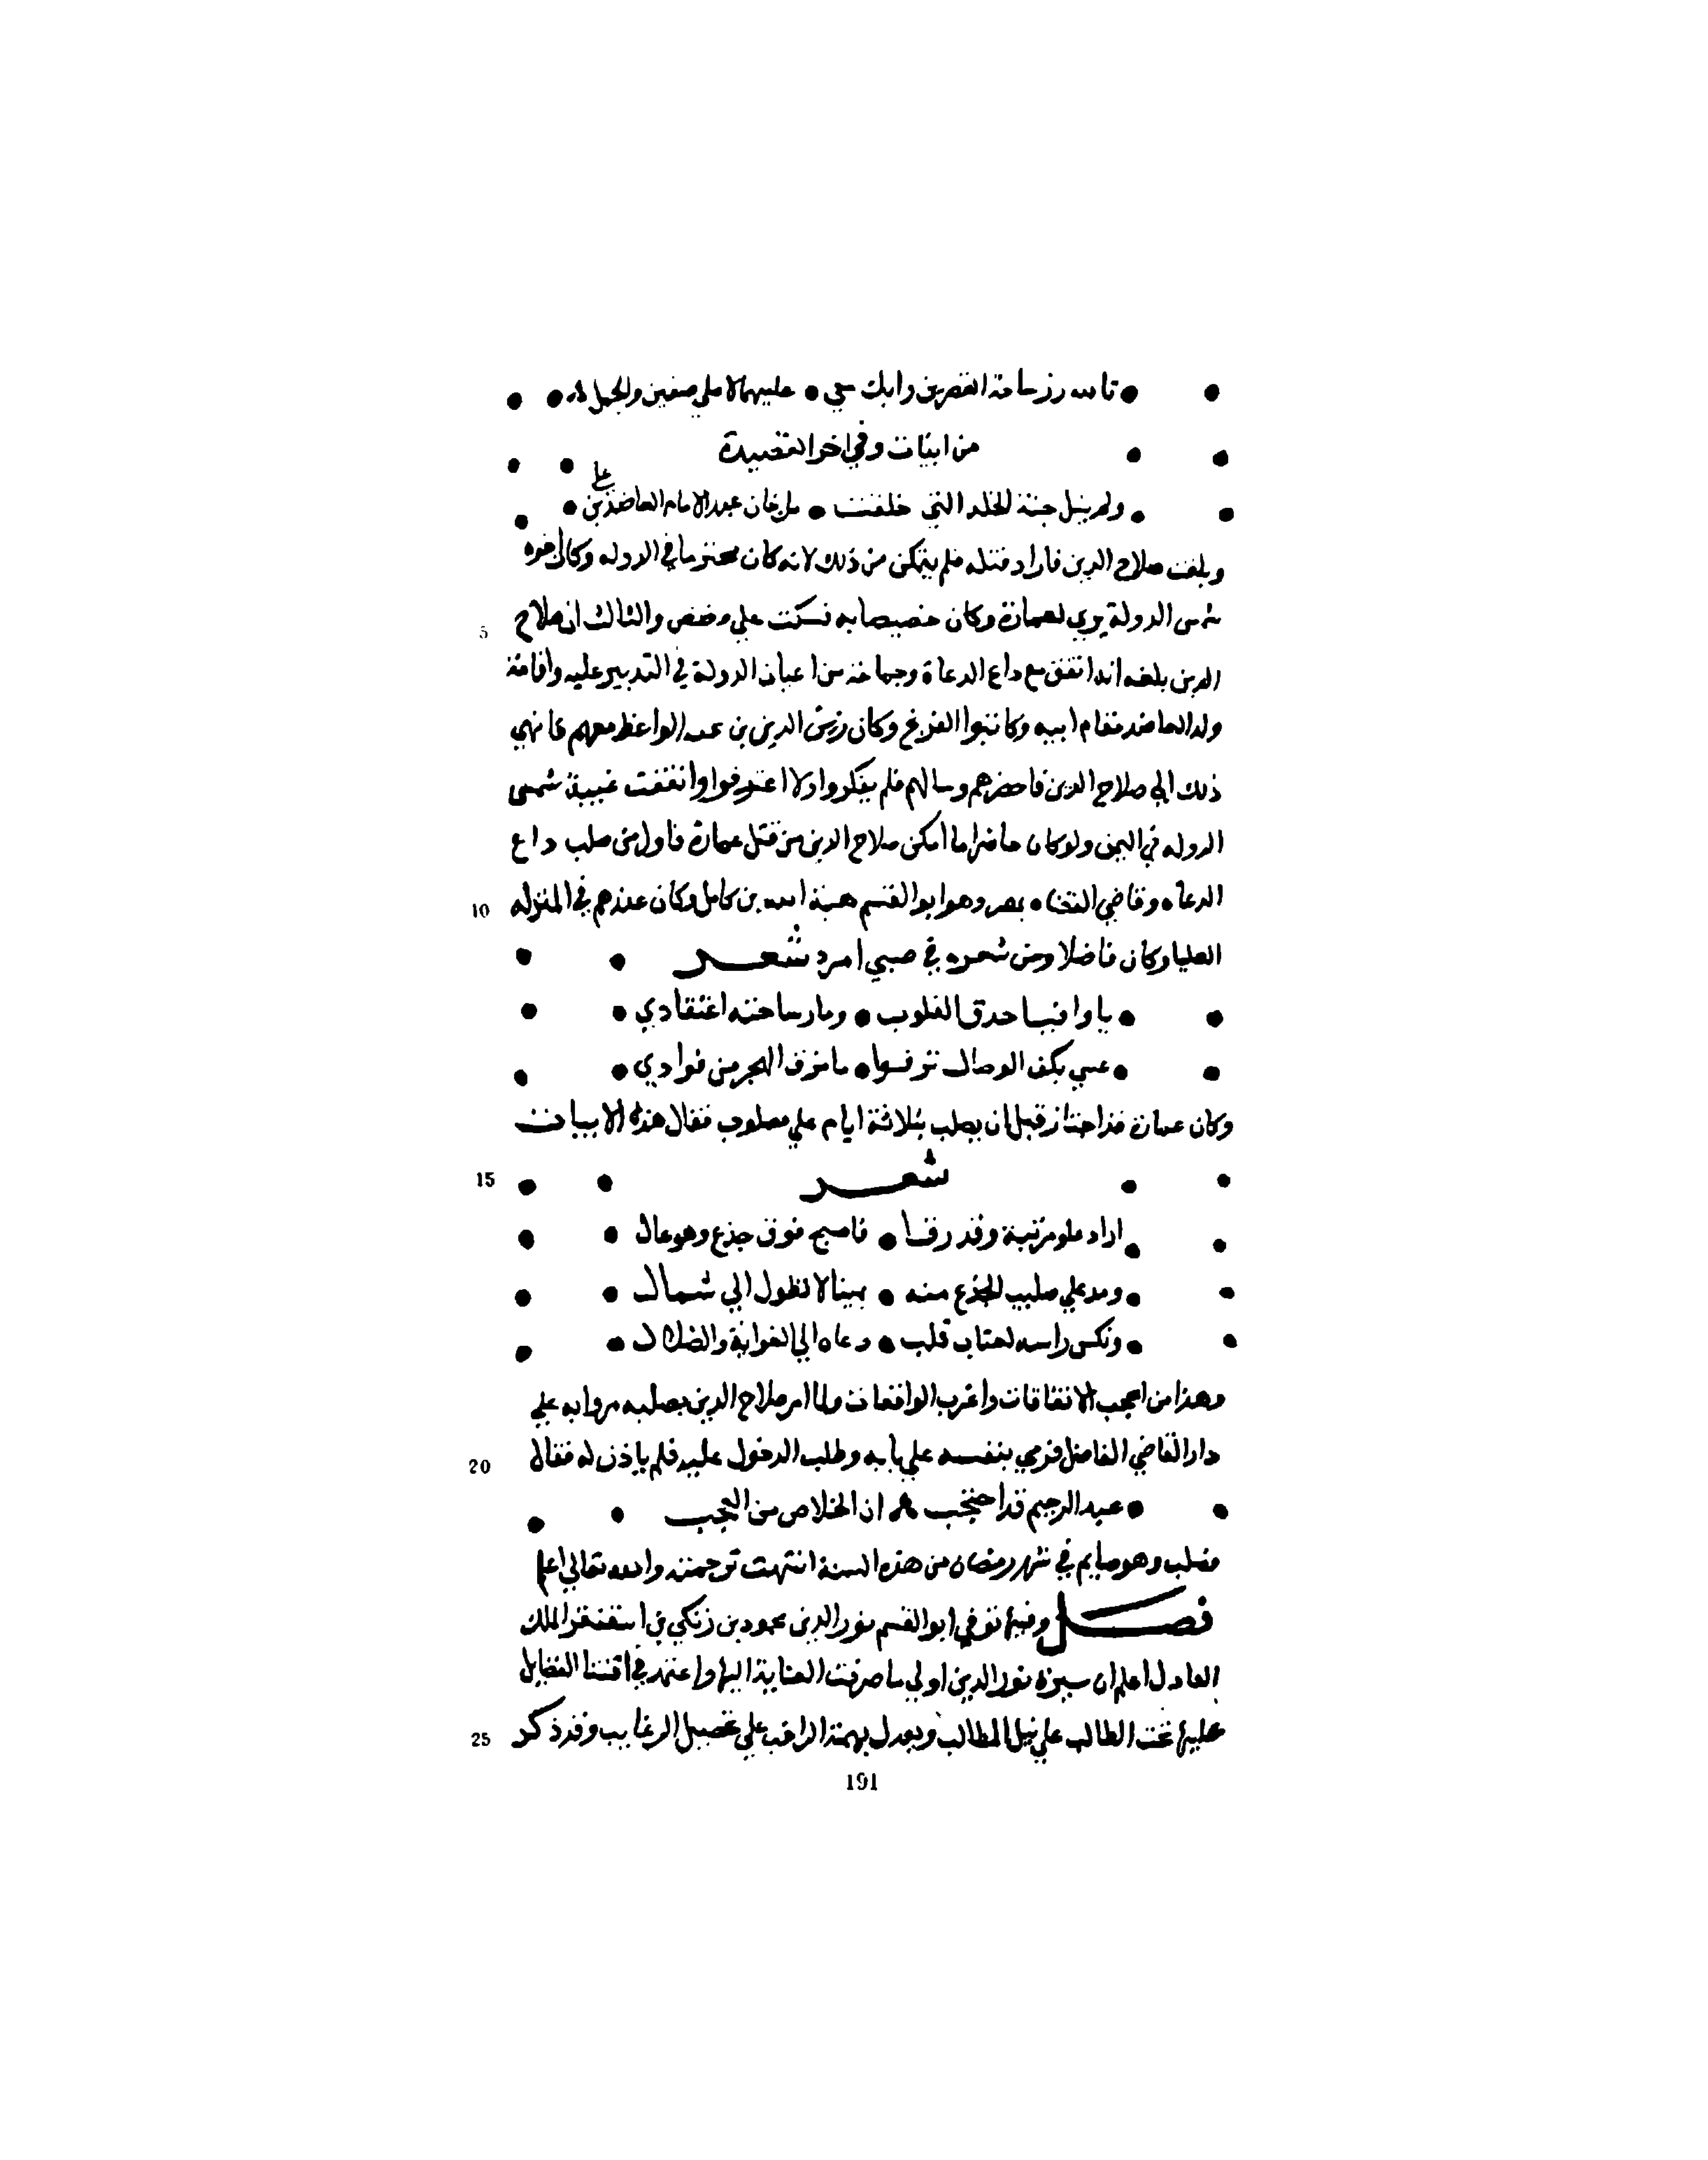 • تالله زر ساحة القصرين وابك معي • عليهما لا علي صفين والجمل •
من ابيات وفي اخر القصيدة
• ولم ينل جنة الخلد التي خلقت • من خان عبد الامام العاضد بن علي •
وبلغت صلاح الدين فاراد قتله فلم يتمكن من ذلك لانه كان محترما في الدوله وكان اخوه
شمس الدولة يري لعمارة وكان خصيصا به فسكت علي مضض والثالث ان صلاح
5
الدين بلغه انه اتفق مع داع الدعاة وجماعة من اعيان الدولة في التدبير عليه واقامة
ولد العاضد مقام ابيه وكاتبوا الفرنج وكان زين الدين بن الواعظ معهم فانهي
ذلك الي صلاح الدين فاحضرهم وسالهم فلم ينكروا ولا اعترفوا واتفقت غيبة شمس
الدوله في اليمن ولو كان حاضرا ما امكن صلاح الدين من قتل عمارة فاول من صلب داع
الدعاه وقاضي القضاه بمصر وهو ابو القسم هبة الله بن كامل وكان عندهم في المنزله
10
العليا وكان فاضلا ومن شعره في صبي امرد شعر
• يا رافيا خرق القلوب • ويا رسا حبه اعتقادي •
• عسي بكف الوصال ترفوا • ما مزق الهجر من فوادي •
وكان عمارة قد اجتاز قبل ان يصلب بثلاثة ايام علي مصلوب فقال هذه الابيات
شعر
15
• اراد علو مرتبة وقدر رقا • فاصبح فوق جذع وهو عال •
• ومد علي صليب الجذع منه • يمينا لا تطول الي شمال •
• ونكس راسه لعتاب قلب • دعاه الي الغواية والضلال •
وهذا من اعجب الاتفاقات واغرب الواقعات ولما امر صلاح الدين بصلبه مروا به علي
دار القاضي الفاضل فرمي بنفسه علي بابه وطلب الدخول عليه فلم ياذن له فقال
20
• عبد الرحيم قد احتجب • ان الخلاص من العجب
فصلب وهو صايم في شهر رمضان من هذه السنة انتهت ترجمته والله تعالي اعلم
فصل وفيها توفي ابو القسم نور الدين محمود بن زنكي بن اقسنقر الملك
العادل اعلم ان سيرة نور الدين اولي ما صرفت العناية اليها واعتمد في اقتنا الفضايل
عليها تحث الطالب علي نيل المطالب وبهمة الراغب علي تحصيل الرغايب وقد ذكر
25
191